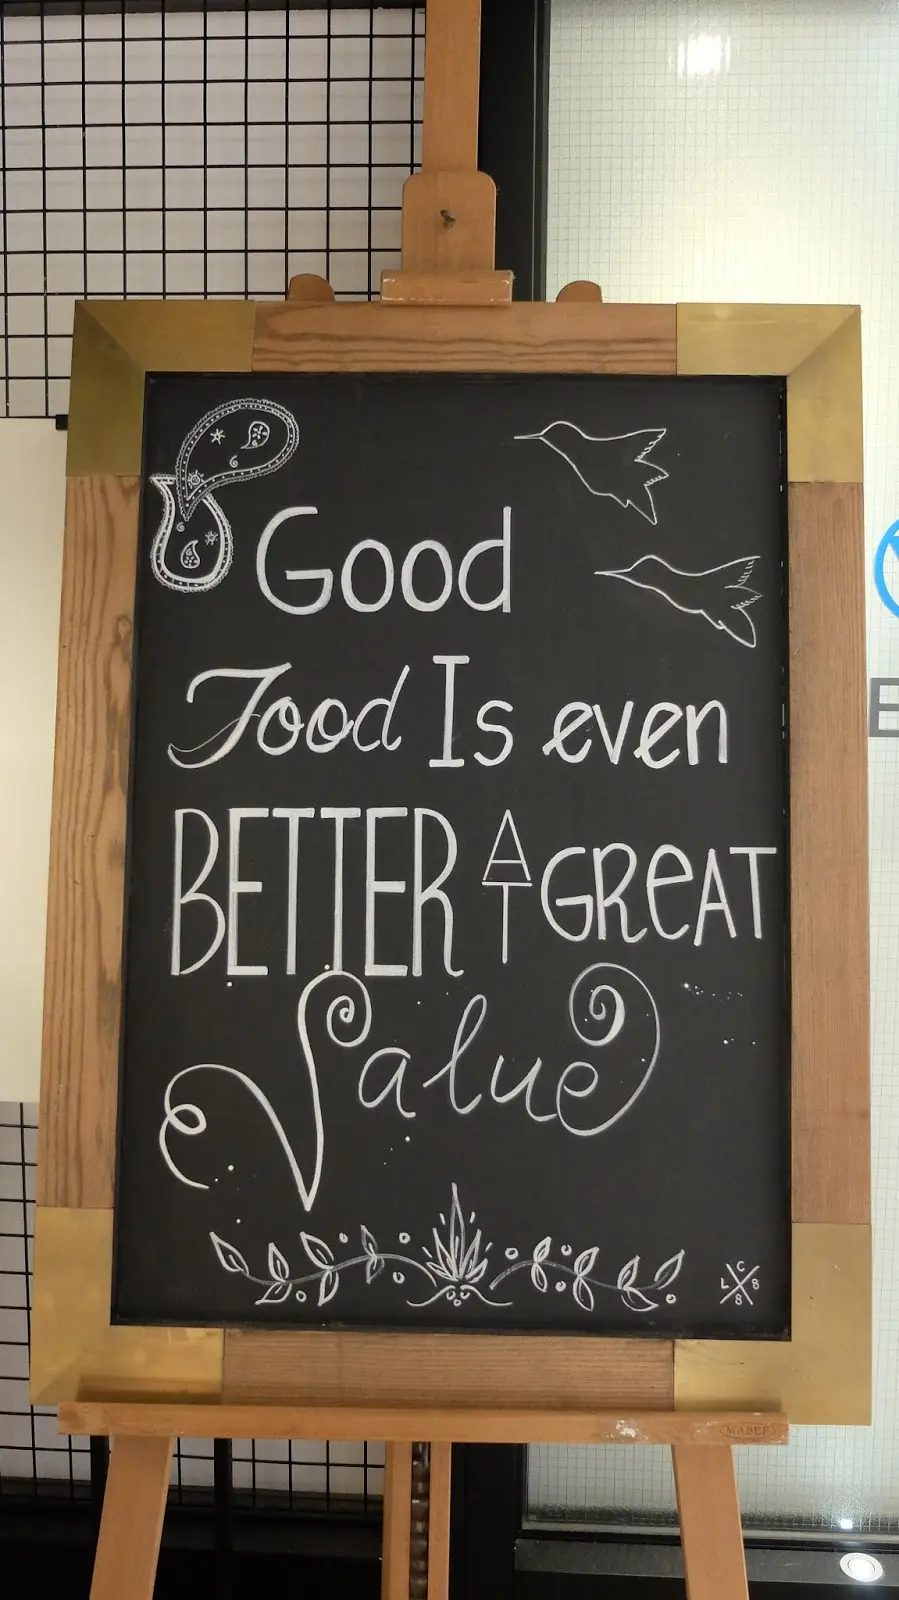 Good
Food Is even
BETTER AT GReAT
Value
L C 8 8
MABEF
E